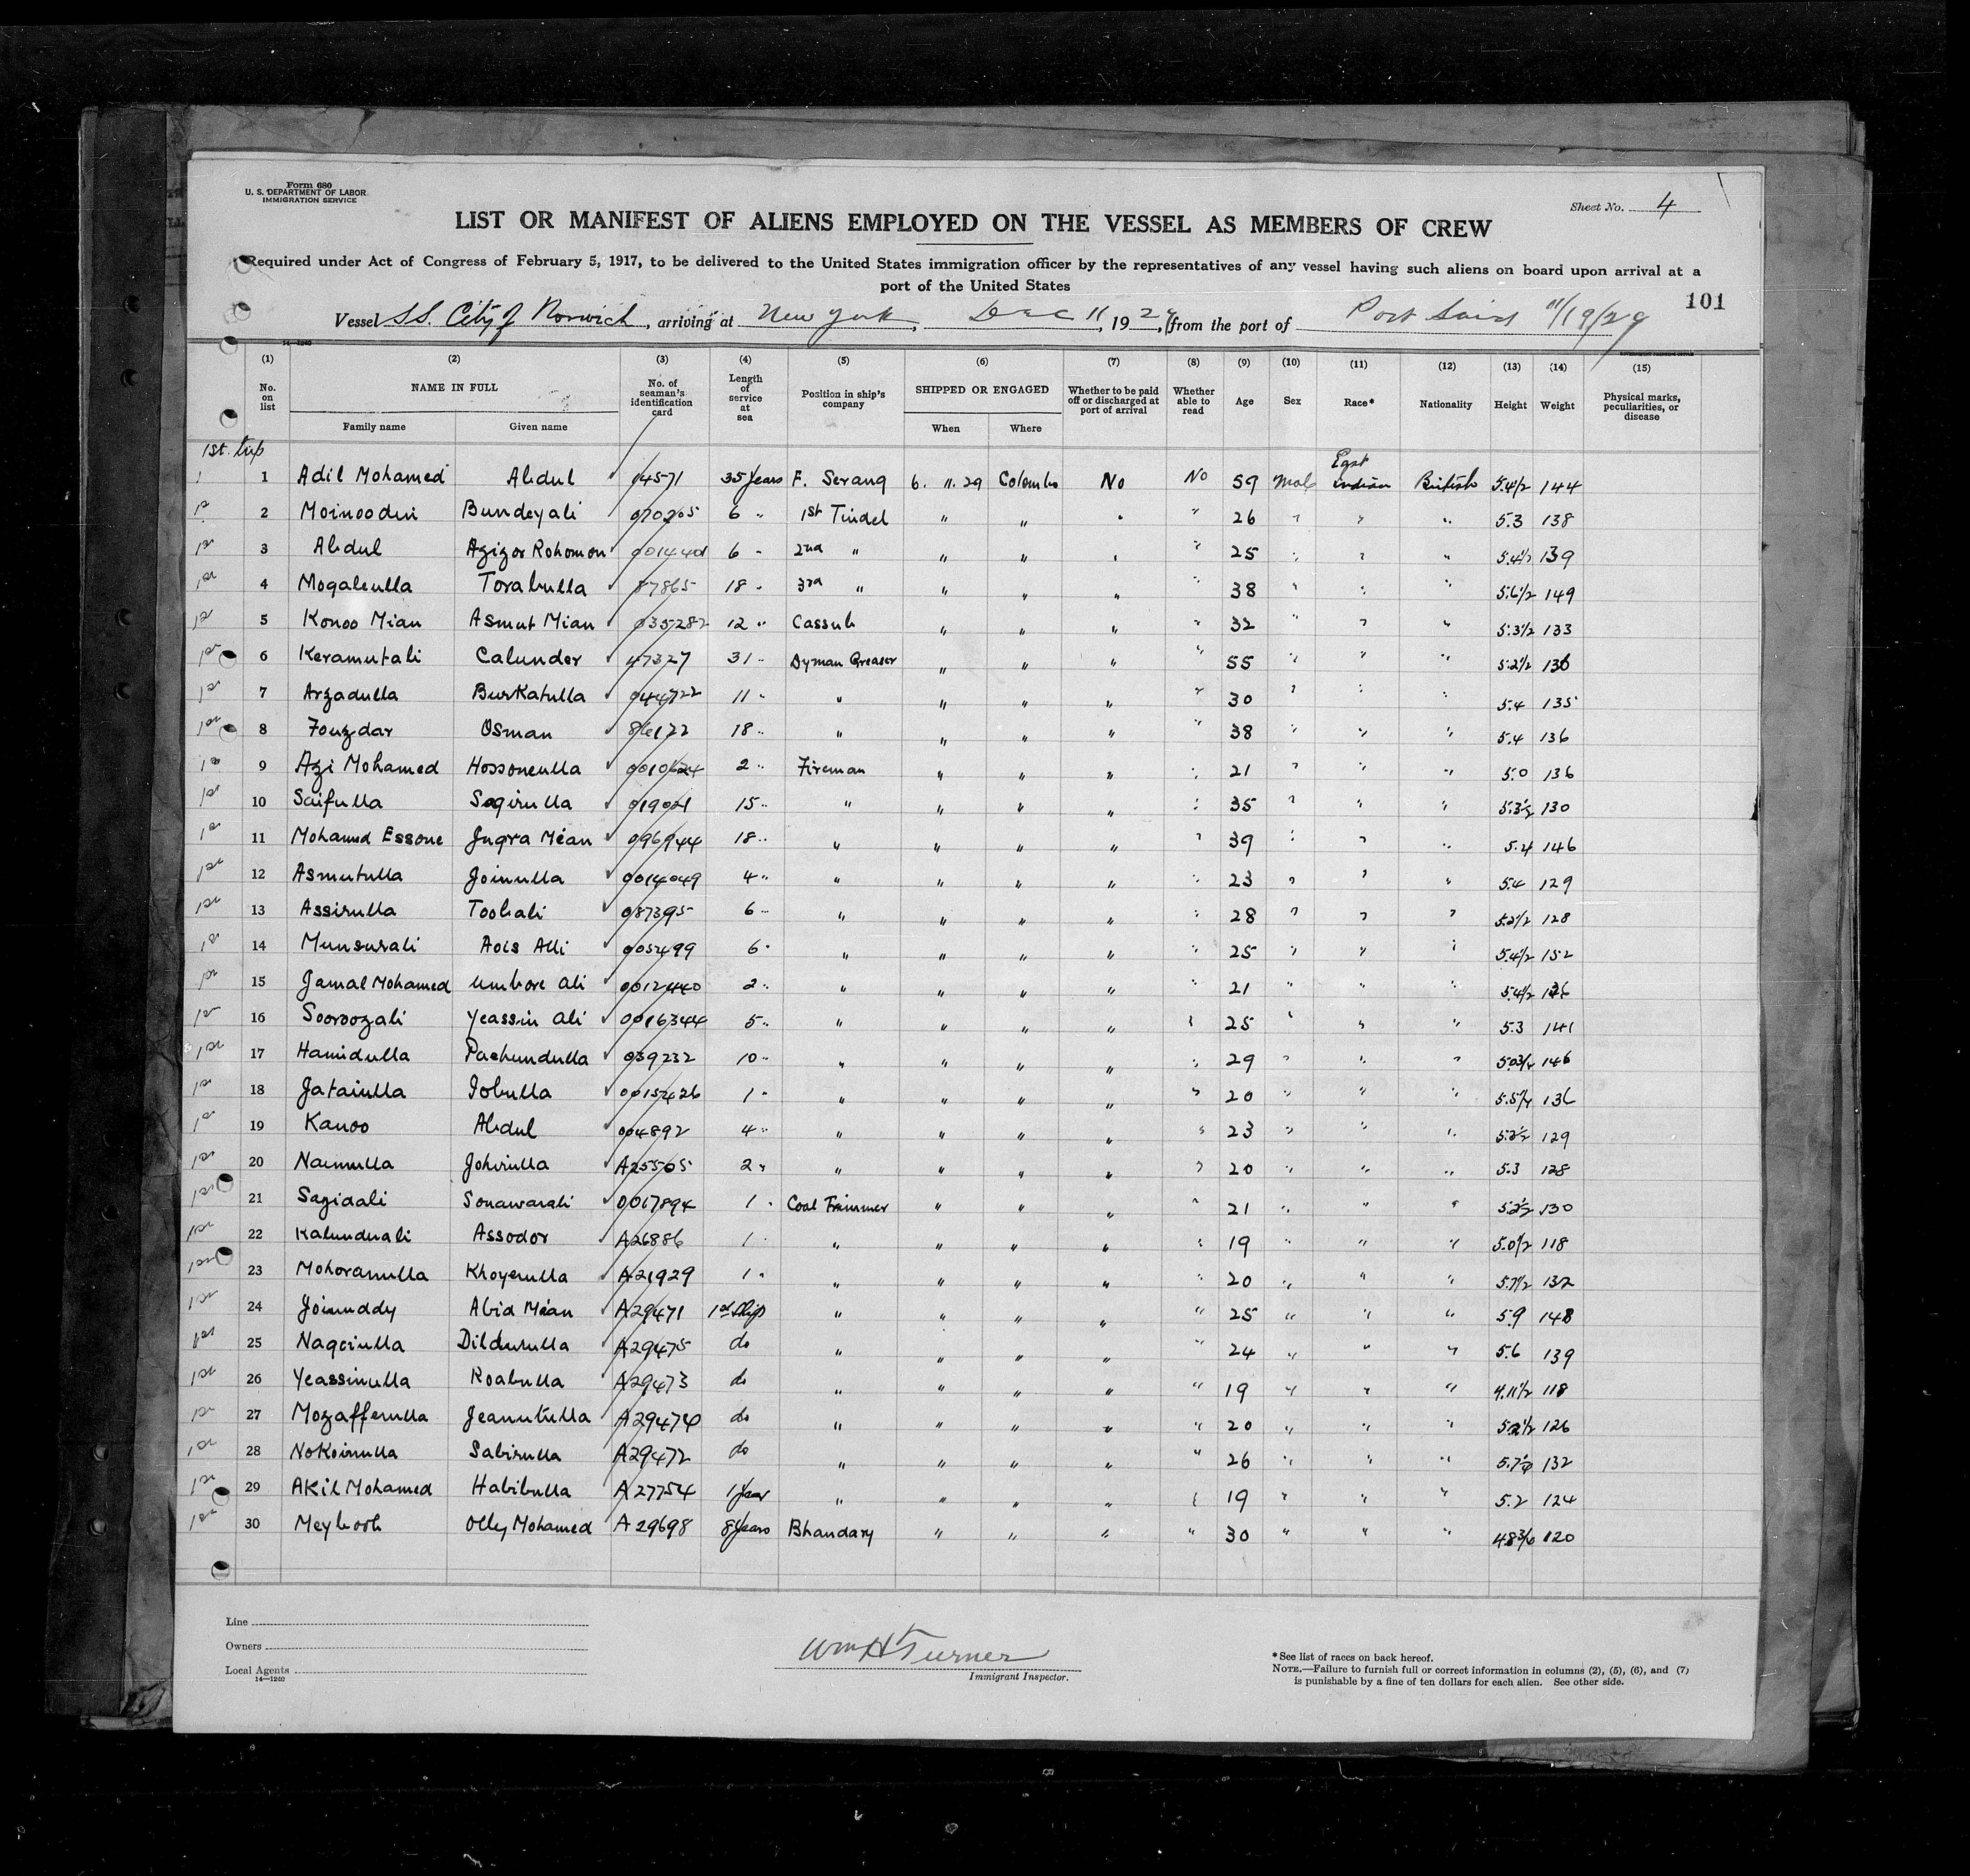 Form 680
U. S. DEPARTMENT OF LABOR
IMMIGRATION SERVICE
Sheet No. 4
LIST OR MANIFEST OF ALIENS EMPLOYED ON THE VESSEL AS MEMBERS OF CREW
Required under Act of Congress of February 5, 1917, to be delivered to the United States immigration officer by the representatives of any vessel having such aliens on board upon arrival at a
port of the United States
101
Vessel SS. City of Norwich, arriving at New York, Dec 11, 1929, from the port of Port Said 11/19/29
14—1240
(1) (2) (3) (4) (5) (6) (7) (8) (9) (10) (11) (12) (13) (14) (15)
No. on list NAME IN FULL No. of seaman's identification card Length of service at sea Position in ship's company SHIPPED OR ENGAGED Whether to be paid off or discharged at port of arrival Whether able to read Age Sex Race* Nationality Height Weight Physical marks, peculiarities, or disease
Family name Given name When Where
1st. trip
1 Adil Mohamed Abdul 04571 35 Years F. Serang 6. 11. 29 Colombo No No 59 Male East Indian British 5.4 1/2 144
2 Moinoodin Bundeyali 070205 6 " 1st Tindel " " " " 26 " " " 5.3 138
3 Abdul Azizor Rohomon 001440 6 " 2nd " " " " " 25 " " " 5.4 1/2 139
4 Mogaleulla Torabulla 87865 18 " 3rd " " " " " 38 " " " 5.6 1/2 149
5 Konoo Mian Asmut Mian 035282 12 " Cassub " " " " 32 " " " 5.3 1/2 133
6 Keramutali Calunder 47327 31 " Dyman Greaser " " " " 55 " " " 5.2 1/2 136
7 Arzadulla Burkatulla 044722 11 " " " " " " 30 " " " 5.4 135
8 Fouzdar Osman 86122 18 " " " " " " 38 " " " 5.4 136
9 Azi Mohamed Hossoneulla 0010624 2 " Fireman " " " " 21 " " " 5.0 136
10 Saifulla Soqirulla 019001 15 " " " " " " 35 " " " 5.3 1/2 130
11 Mohamed Essone Jugra Mean 096944 18 " " " " " " 39 " " " 5.4 146
12 Asmutulla Joinulla 0014049 4 " " " " " " 23 " " " 5.4 129
13 Assirulla Toobali 087395 6 " " " " " " 28 " " " 5.2 1/2 128
14 Munsurali Aois Alli 005499 6 " " " " " " 25 " " " 5.4 1/2 152
15 Jamal Mohamed Umbore Ali 0012440 2 " " " " " " 21 " " " 5.4 1/2
16 Sooroozali Yeassin Ali 0016344 5 " " " " " " 25 " " " 5.3 141
17 Hamidulla Pachundulla 039232 10 " " " " " " 29 " " " 5.0 3/4 146
18 Jatainlla Iobulla 0015426 1 " " " " " " 20 " " " 136
19 Kanoo Abdul 004892 4 " " " " " " 23 " " " 5.2 1/2 129
20 Naimulla Johirulla A25505 2 " " " " " " 20 " " " 5.3 128
21 Sazidali Sonawarali 0017894 1 " Coal Trimmer " " " " 21 " " " 5.2 1/2 130
22 Kalunduali Assodor A26886 1 " " " " " " 19 " " " 5.0 1/2 118
23 Mohoramulla Khoyerulla A21929 1 " " " " " " 20 " " " 5.7 1/2 132
24 Joinuddy Abid Mean A29471 1st Ship " " " " " 25 " " " 5.9 148
25 Naqoinulla Dildurulla A29475 do " " " " " 24 " " " 5.6 139
26 Yeassinulla Roabulla A29473 do " " " " " 19 " " " 4.11 1/2 118
27 Mozafferulla Jeanutulla A29474 do " " " " " 20 " " " 5.2 1/2 126
28 Nokoinulla Sabirulla A29472 do " " " " " 26 " " " 132
29 Akil Mohamed Habibulla A27754 1 Year " " " " " 19 " " " 5.2 124
30 Meyboob Olley Mohamed A29698 8 Years Bhandary " " " " 30 " " " 120
Line
Owners
Local Agents
14—1240
Wm H Turner
Immigrant Inspector.
*See list of races on back hereof.
NOTE.—Failure to furnish full or correct information in columns (2), (5), (6), and (7)
is punishable by a fine of ten dollars for each alien. See other side.